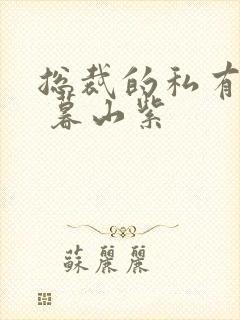 总裁的私有
暮山紫
蘇麗麗